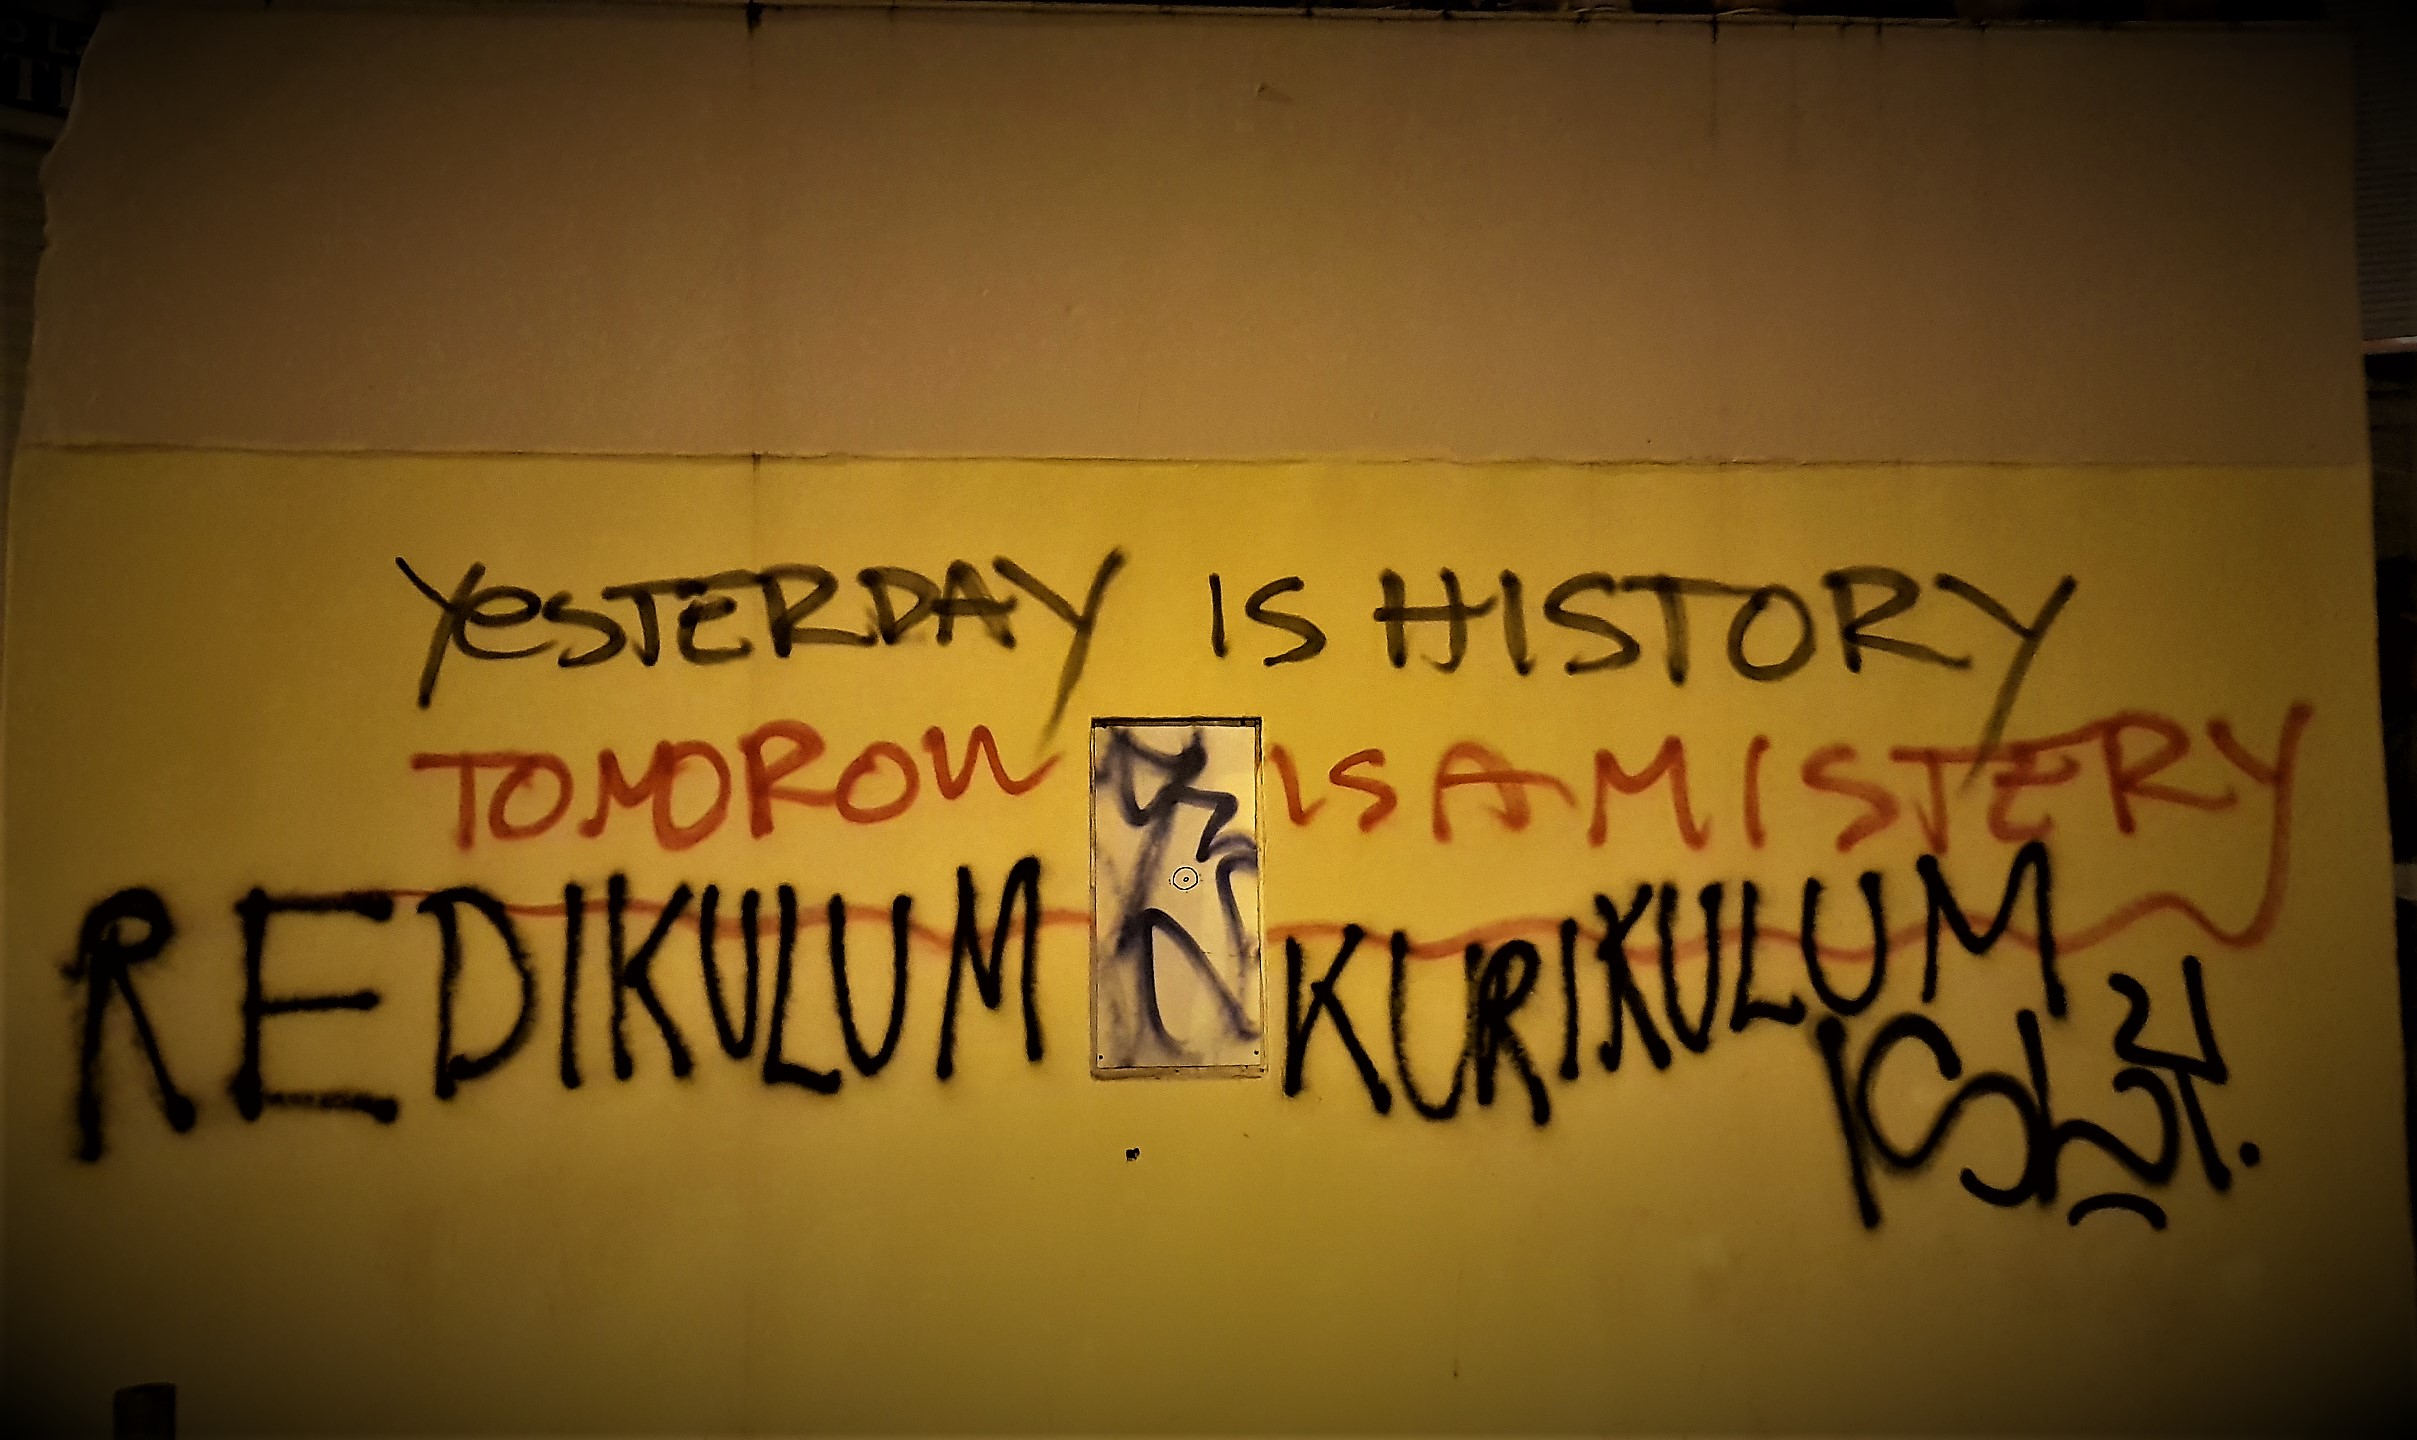 YeSTERDAY IS HISTORY
TOMOROW IS A MISTERY
REDIKULUM KURIKULUM